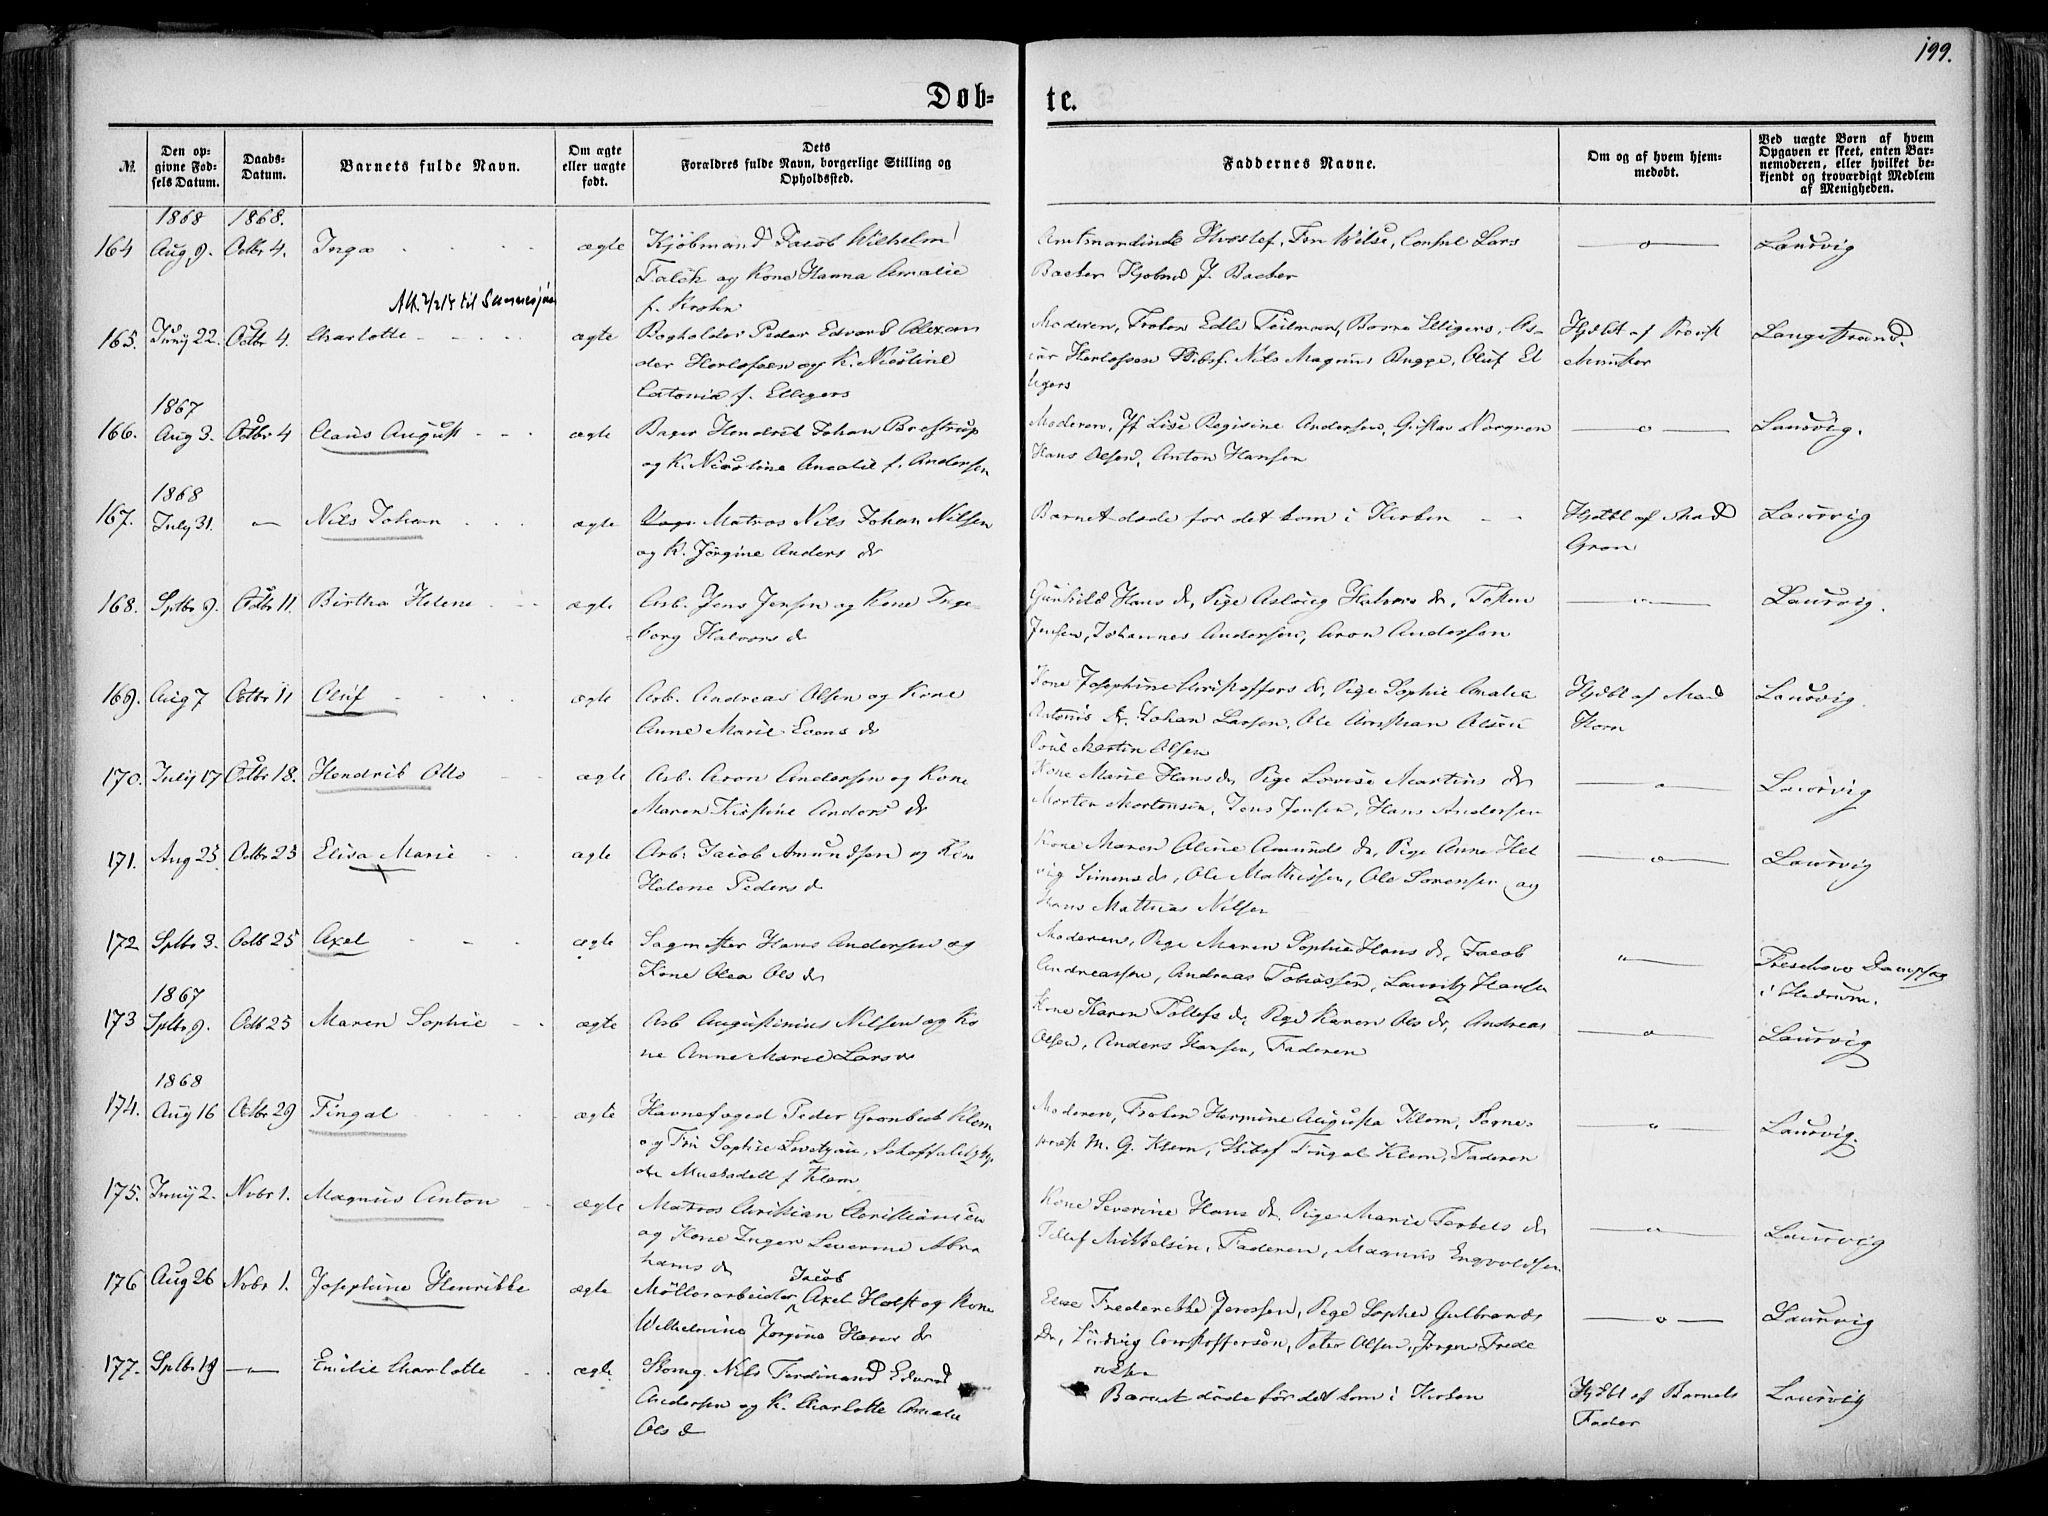 199.
Døb-
te.
№
Den op-
givne Fød-
sels Datum.
Daabs-
Datum.
Barnets fulde Navn.
Om ægte
eller uægte
født.
Dets
Forældres fulde Navn, borgerlige Stilling og
Opholdssted.
Faddernes Navne.
Om og af hvem hjem-
medøbt.
Ved uægte Børn af hvem
Opgaven er skeet, enten Bar-
nemoderen, eller hvilket be-
kjendt og troværdigt Medlem
af Menigheden.
1868 1868.
164 Aug. 9. Octbr 4. Inga ægte Kjøbmand Jacob Wilhelm
Falck og Kone Hanna Amalie
f. Krohn
Fru Wilse, Consul Lars
Backer J. Backer
Laurvig
165. Juny 22. Octbr 4. Charlotte ægte Bogholder Peder Edvard Alexan
der Herlofsen og K. Nicoline
Catonia f. Elligers
Moderen, Frøken Edle Teilman, Elligers, Os-
car Herlofsen Skibsf. Nils Magnus Bugge, Oluf El
ligers
Hjdbt af Provst
Munster
Langestrand.
1867
166. Aug 3. Octbr 4 Claus August ægte Bager Hendrik Johan Brestrup
og K. Nicoline Amalie f. Andersen
Moderen, Jf Lise Regisine Andersen, Gustav Norgren
Hans Olsen, Anton Hansen
Laurvig.
1868
167. July 31. Nils Johan ægte Matros Nils Johan Nilsen
og K. Jørgine Anders dr
Barnet døde før det kom i Kirken
Hjdbt af Mad
Gron
Laurvig
168. Sptbr 9. Octbr 11. Birtha Helene ægte Arb. Jens Jensen og Kone Inge-
borg Halvors d
Gunhild Hans dr, Pige Aslaug Halvors dr,
Jensen, Johannes Andersen, Aron Andersen
Laurvig.
169. Aug 7 Octbr 11 Oluf ægte Arb. Andreas Olsen og Kone
Anne Marie Evens dr
Kone Josephine Christoffers dr, Pige Sophie Amalia
Antonis dr, Johan Larsen, Ole Christian Olsen
Poul Martin Olsen
Hjdbt af Mad
Horn
Laurvig.
170. July 17 Octbr 18. Hendrik Otto ægte Arb. Aron Andersen og Kone
Maren Kirstine Anders dr
Kone Marie Hans dr, Pige Lovise Martins dr
Morten Mortensen, Jens Jensen, Hans Andersen
Laurvig
171. Aug 25 Octbr 25 Elisa Marie ægte Arb. Jacob Amundsen og Kone
Helene Peders d
Kone Maren Oline Amunds dr, Pige Anne Hel
vig Simons dr, Ole Mathisen, Ole Sørensen og
Hans Mathias Nilsen
Laurvig
172 Sptbr 3. Octb 25 Axel ægte Sagmester Hans Andersen og
Kone Olea Ols dr
Moderen, Pige Maren Sophie Hans dr, Jacob
Andreassen, Andreas Tobiassen, Lauritz Hansen
Treschow Dampsag
i Hedrum.
1867
173 Sptbr 9. Octb 25 Maren Sophie ægte Arb Augustinius Nilsen og Ko
ne Anne Marie Lars dr
Kone Karen Tollefs dr, Pige Karen Ols dr, Andreas
Olsen, Anders Hansen, Faderen
Laurvig
1868
174. Aug 16 Octbr 29 Fingal ægte Havnefoged Peder Grønbeck Klem
og Fru Sophie
f Klem
Moderen, Frøken Hermine Augusta Klem, Sogne-
prest M. G. Klem, Skibsf Fingal Klem, Faderen
Laurvig.
175. Juny 2. Nvbr 1. Magnus Anton ægte Matros Christian Christiansen
og Kone Inger Severine Abra
hams dr
Kone Severine Hans dr, Pige Marie Terkels dr
Tollef Mikkelsen, Faderen, Magnus Engvoldsen
Laurvig
176 Aug 26 Nvbr 1. Josephine Henrikke ægte Möllerarbeider Jacob Axel Holst og Kone
Wilhelmine Jørgine Hans dr
Else Frederikke Jerossen, Pige Sophie Gulbrands
dr, Ludvig Christoffersen, Peter Olsen, Jørgen Frede
riksen
Laurvig
177. Sptbr 19 Emilie Charlotte ægte Skomg. Nils Ferdinand Edvard
Andersen og K. Charlotte Amalie
Ols d
Barnet døde før det kom i Kirken
Hjdbt af Barnets
Fader
Laurvig